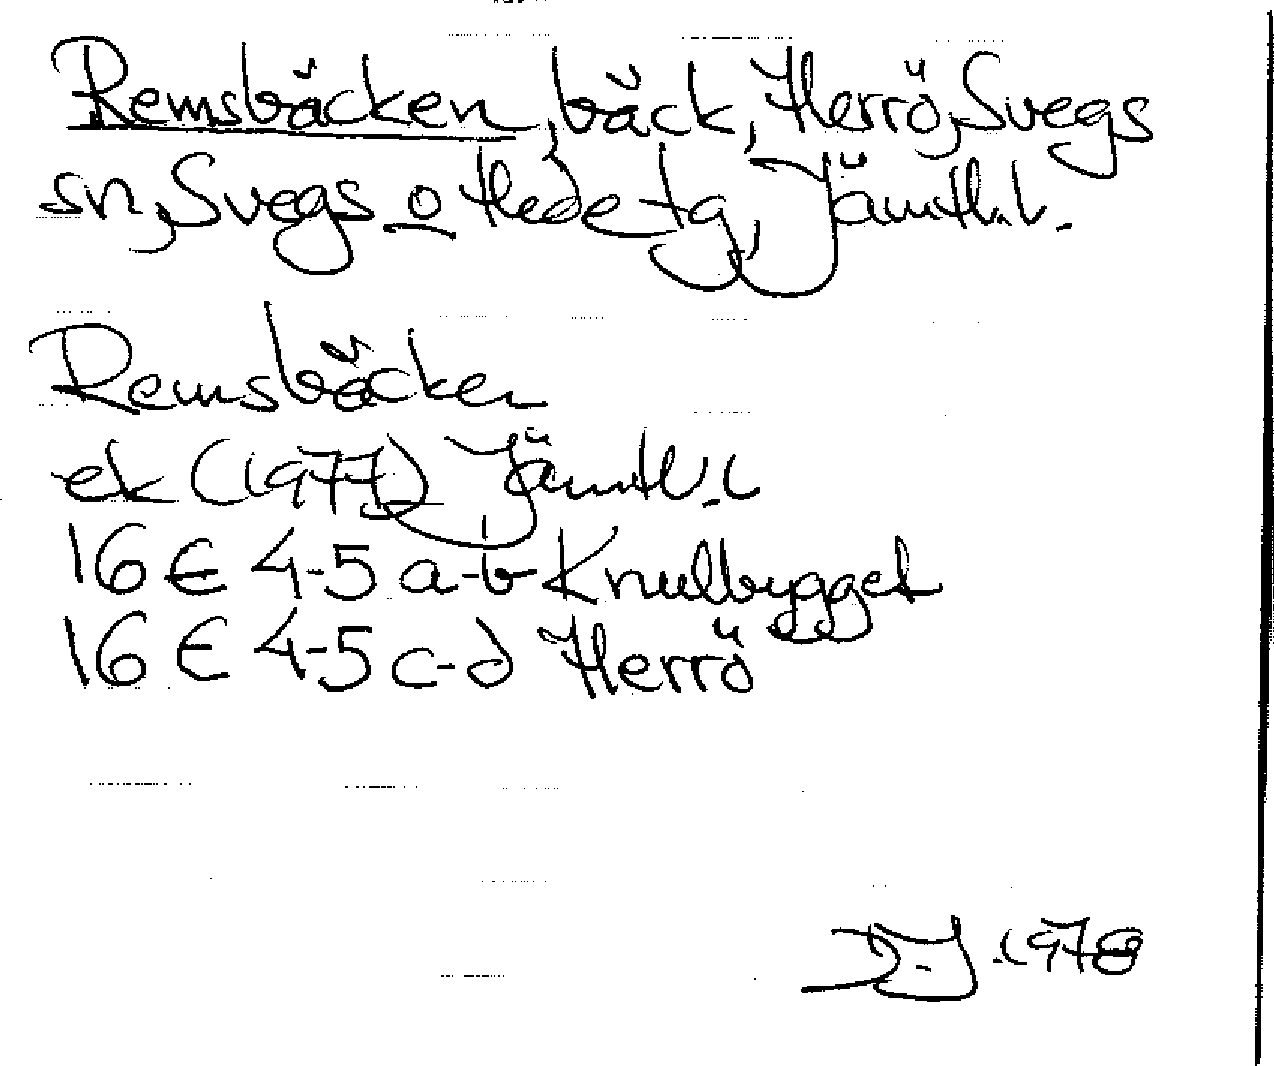 Remsbäcken, bäck, Herrö, Svegs
sn, Svegs o Hede tg, Jämtl. l.
Remsbäcken
ek (1977) Jämtl. l
16 E 4-5 a-b Knullbygget
16 E 4-5 c-d Herrö
1978